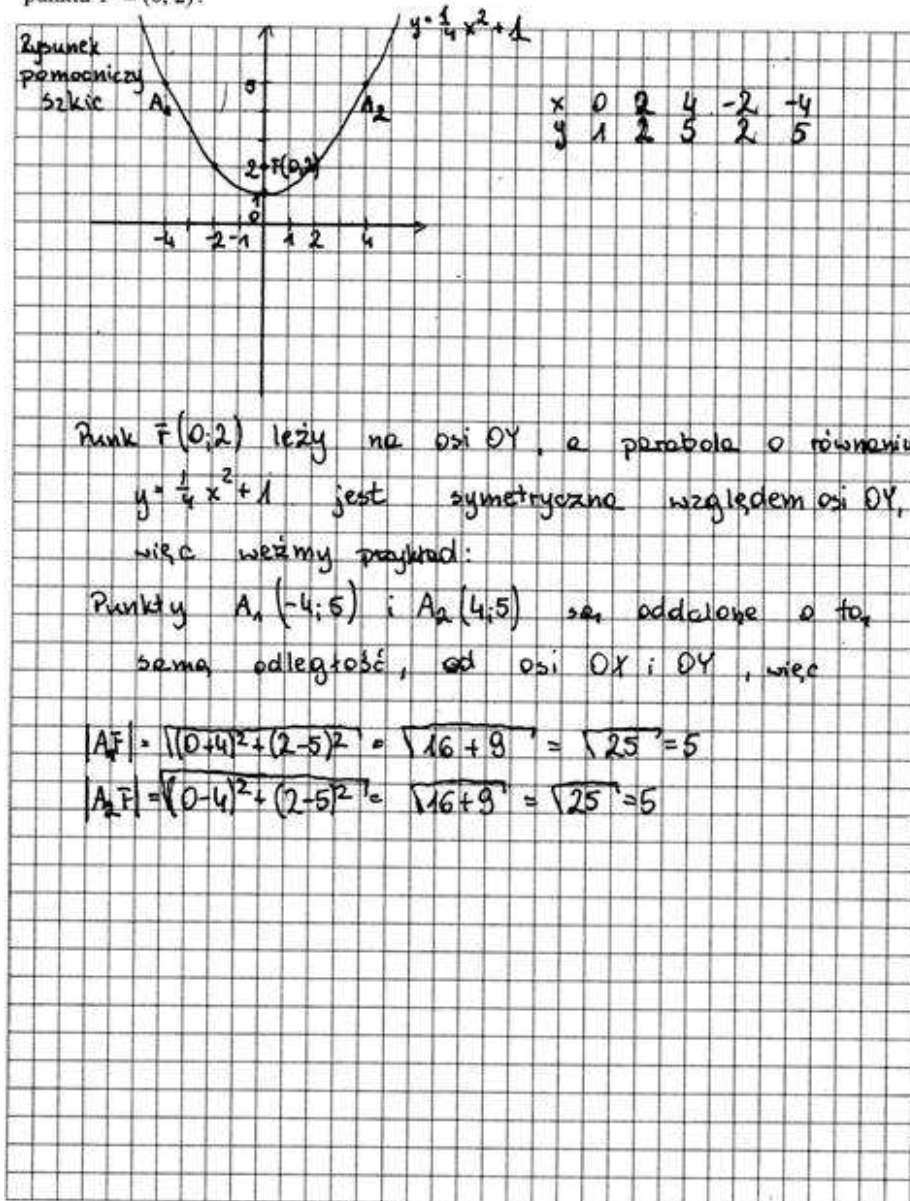 punktu F = (0, 2).
y = 1/4 x² + 1
Rysunek
pomocniczy
szkic
A₁ 5 A₂
x 0 2 4 -2 -4
y 1 2 5 2 5
2 F(0,2)
1
0
-4 -2 -1 1 2 4
Punk F(0;2) leży na osi OY, a parabola o równaniu
y = 1/4 x² + 1 jest symetryczna względem osi OY,
więc weźmy przykład:
Punkty A₁(-4;5) i A₂(4;5) są oddalone o tą
samą odległość, od osi OX i OY, więc
|A₁F| = √((0+4)²+(2-5)²) = √(16+9) = √25 = 5
|A₂F| = √((0-4)²+(2-5)²) = √(16+9) = √25 = 5